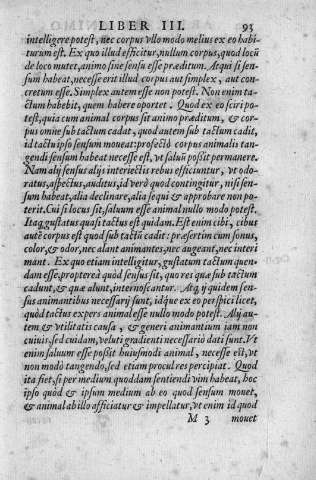 LIBER III. 93
intelligere potest, nec corpus vllo modo melius ex eo habi
turum est. Ex quo illud efficitur, nullum corpus, quod locũ
de loco mutet, animo sine sensu esse præditum. Atqui si sen-
sum habeat, necesse erit illud corpus aut simplex, aut con-
cretum esse. Simplex autem esse non potest. Non enim ta-
ctum habebit, quem habere oportet. Quod ex eo sciri po-
test, quia cum animal corpus sit animo præditum, & cor-
pus omne sub tactum cadat, quod autem sub tactum cadit,
id tactu ipso sensum moueat: profectò corpus animalis tan-
gendi sensum habeat necesse est, vt saluũ possit permanere.
Nam alij sensus alijs interiectis rebus efficiuntur, vt odo-
ratus, aspectus, auditus, id verò quod contingitur, nisi sen-
sum habeat, alia declinare, alia sequi & approbare non po-
terit. Cui si locus sit, saluum esse animal nullo modo potest.
Itaq; gustatus quasi tactus est quidam. Est enim cibi, cibus
autẽ corpus est quod sub tactũ cadit: præsertim cum sonus,
color, & odor, nec alant animantes, nec augeant, nec interi
mant. Ex quo etiam intelligitur, gustatum tactum quen-
dam esse, propterea quòd sensus sit, quo res quæ sub tactum
cadunt, & quæ alunt, internoscantur. Atq; ij quidem sen-
sus animantibus necessarij sunt, idq́ue ex eo perspici licet,
quòd tactus expers animal esse nullo modo potest. Alij au-
tem & vtilitatis causa, & generi animantium iam non
cuiuis, sed cuidam, veluti gradienti necessariò dati sunt. Vt
enim saluum esse possit huiusmodi animal, necesse est, vt
non modo tangendo, sed etiam procul res percipiat. Quod
ita fiet, si per medium quoddam sentiendi vim habeat, hoc
ipso quòd & ipsum medium ab eo quod sensum mouet,
& animal ab illo afficiatur & impellatur, vt enim id quod
M 3 mouet